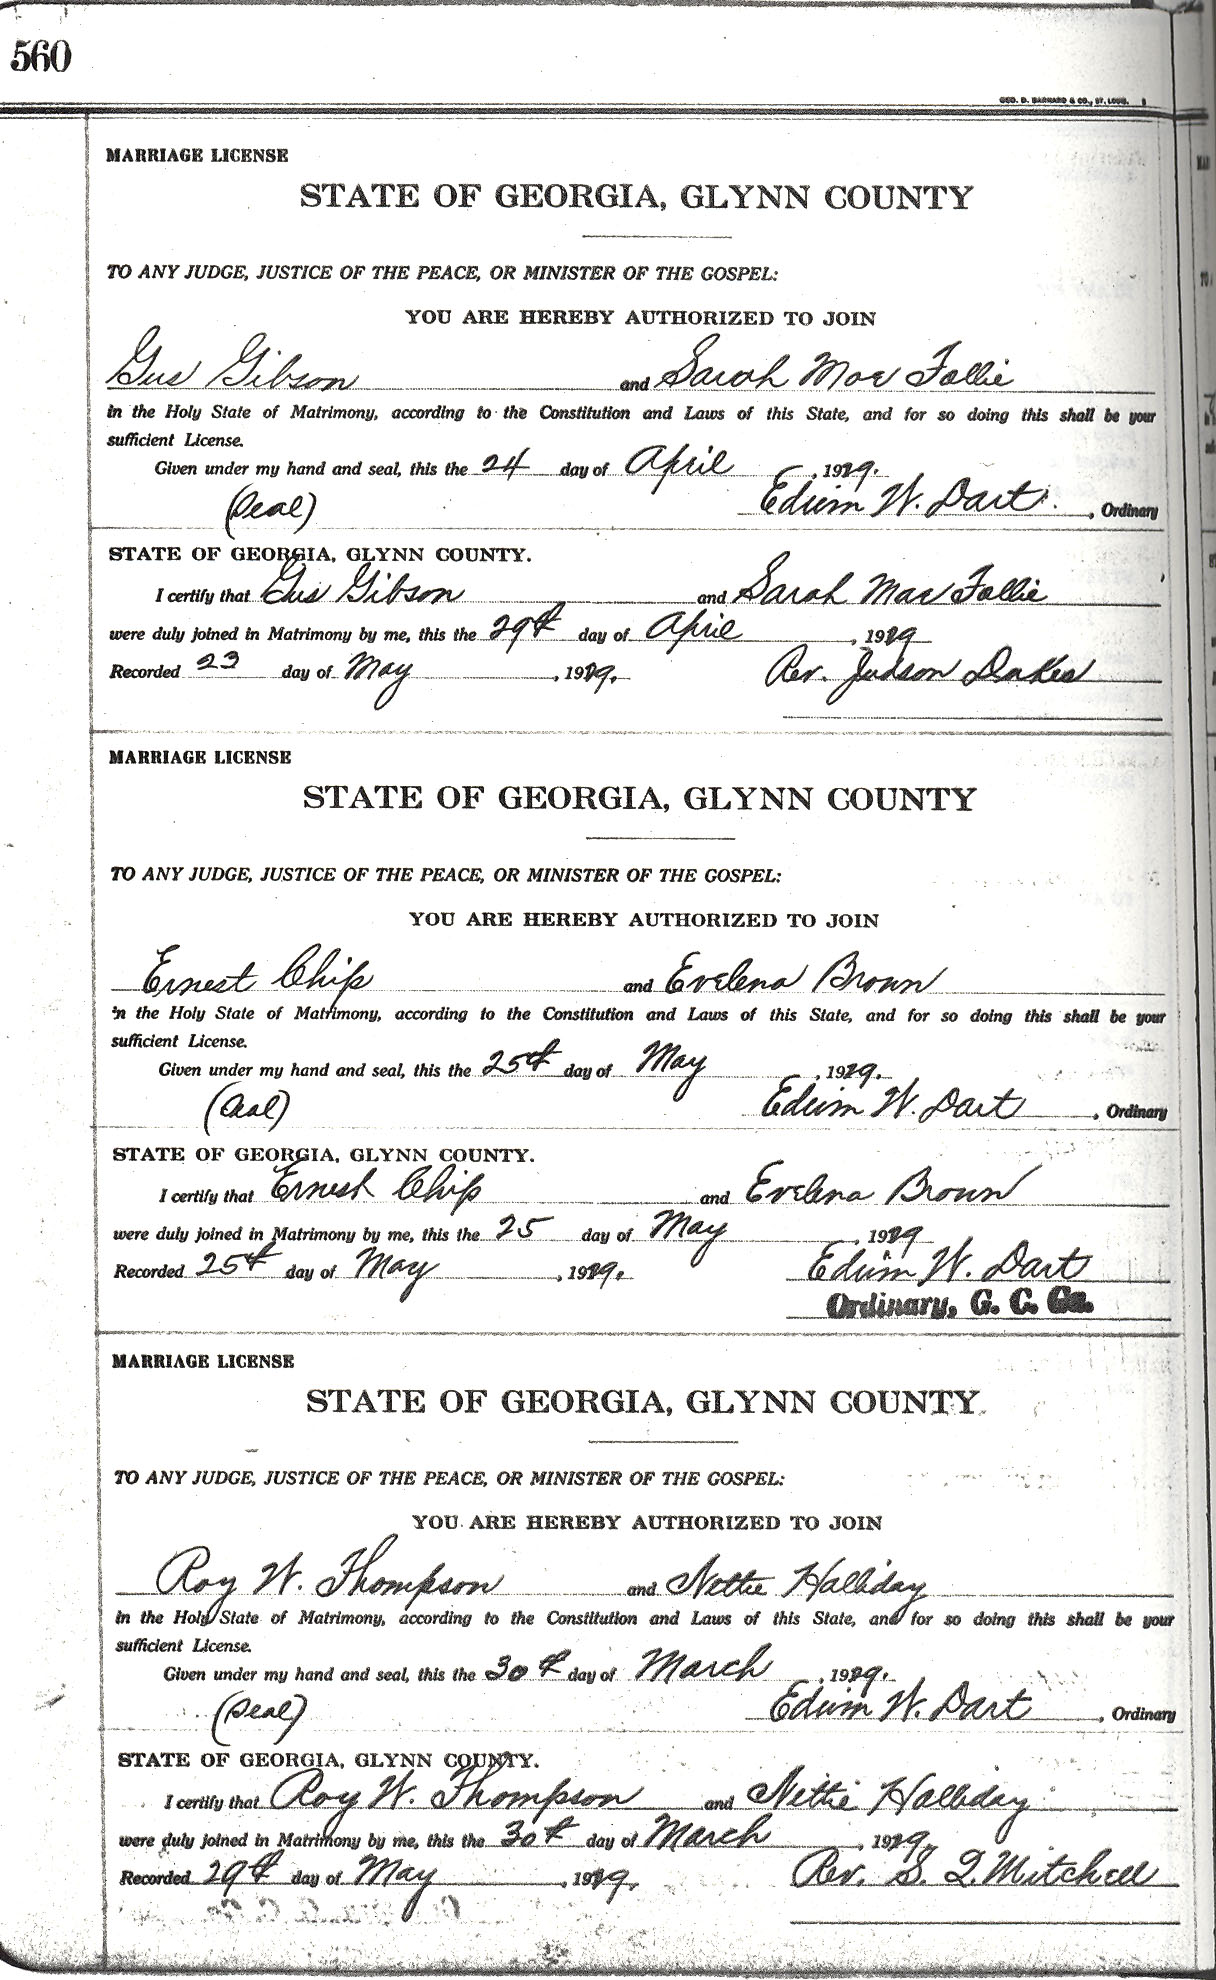 560
GEO. D. BARNARD & CO., ST. LOUIS.
MARRIAGE LICENSE
STATE OF GEORGIA, GLYNN COUNTY
TO ANY JUDGE, JUSTICE OF THE PEACE, OR MINISTER OF THE GOSPEL:
YOU ARE HEREBY AUTHORIZED TO JOIN
Gus Gibson and Sarah Mae Follie
in the Holy State of Matrimony, according to the Constitution and Laws of this State, and for so doing this shall be your
sufficient License.
Given under my hand and seal, this the 24 day of April, 1929.
(Seal) Edwin W. Dart., Ordinary
STATE OF GEORGIA, GLYNN COUNTY.
I certify that Gus Gibson and Sarah Mae Follie
were duly joined in Matrimony by me, this the 29th day of April, 1929
Recorded 23 day of May, 1929. Rev. Judson Dakes
MARRIAGE LICENSE
STATE OF GEORGIA, GLYNN COUNTY
TO ANY JUDGE, JUSTICE OF THE PEACE, OR MINISTER OF THE GOSPEL:
YOU ARE HEREBY AUTHORIZED TO JOIN
Ernest Chip and Evelena Brown
in the Holy State of Matrimony, according to the Constitution and Laws of this State, and for so doing this shall be your
sufficient License.
Given under my hand and seal, this the 25th day of May, 1929.
(Seal) Edwin W. Dart, Ordinary
STATE OF GEORGIA, GLYNN COUNTY.
I certify that Ernest Chip and Evelena Brown
were duly joined in Matrimony by me, this the 25 day of May, 1929
Recorded 25th day of May, 1929. Edwin W. Dart
Ordinary, G. C. Ga.
MARRIAGE LICENSE
STATE OF GEORGIA, GLYNN COUNTY
TO ANY JUDGE, JUSTICE OF THE PEACE, OR MINISTER OF THE GOSPEL:
YOU ARE HEREBY AUTHORIZED TO JOIN
Roy W. Thompson and Nettie Halliday
in the Holy State of Matrimony, according to the Constitution and Laws of this State, and for so doing this shall be your
sufficient License.
Given under my hand and seal, this the 30th day of March, 1929.
(Seal) Edwin W. Dart, Ordinary
STATE OF GEORGIA, GLYNN COUNTY.
I certify that Roy W. Thompson and Nettie Halliday
were duly joined in Matrimony by me, this the 30th day of March, 1929.
Recorded 29th day of May, 1929. Rev. S. Q. Mitchell